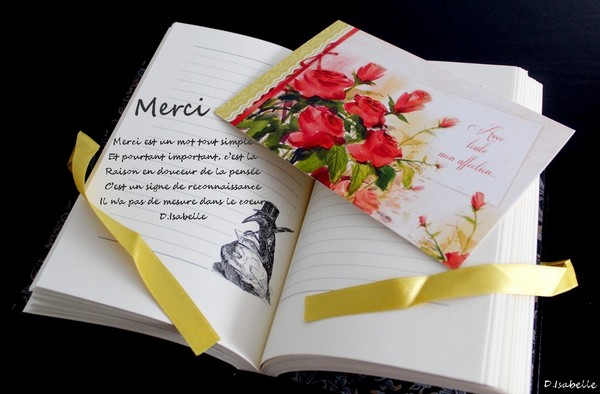 Merci
Merci est un mot tout simple
Et pourtant important, c'est la
Raison en douceur de la pensée
C'est un signe de reconnaissance
Il n'a pas de mesure dans le coeur
D.Isabelle
Avec
toute
mon affection...
D.Isabelle